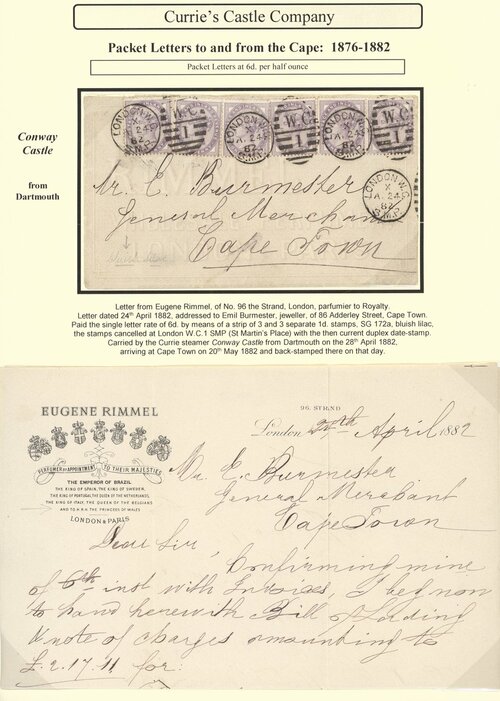 Currie's Castle Company
Packet Letters to and from the Cape: 1876-1882
Packet Letters at 6d. per half ounce
Conway
Castle
from
Dartmouth
LONDON.W.C.
X
82
S.M.P.
W.C.
1
LONDON.W.C.
X
A. 24
82
S.M.P.
W.C.
1
LONDON.W.C.
X
A. 24
82
S.M.P.
W.C.
1
LONDON W.C.
X
A. 24
82
S.M.P.
Mr. E. Burmester
General Merchant
Cape Town
Letter from Eugene Rimmel, of No. 96 the Strand, London, parfumier to Royalty.
Letter dated 24th April 1882, addressed to Emil Burmester, jeweller, of 86 Adderley Street, Cape Town.
Paid the single letter rate of 6d. by means of a strip of 3 and 3 separate 1d. stamps, SG 172a, bluish lilac,
the stamps cancelled at London W.C.1 SMP (St Martin's Place) with the then current duplex date-stamp.
Carried by the Currie steamer Conway Castle from Dartmouth on the 28th April 1882,
arriving at Cape Town on 20th May 1882 and back-stamped there on that day.
EUGENE RIMMEL
PERFUMER BY APPOINTMENT TO THEIR MAJESTIES
THE EMPEROR OF BRAZIL
THE KING OF SPAIN, THE KING OF SWEDEN,
THE KING OF PORTUGAL, THE QUEEN OF THE NETHERLANDS,
THE KING OF ITALY, THE QUEEN OF THE BELGIANS
AND TO H.R.H. THE PRINCESS OF WALES
LONDON & PARIS
96. STRAND
London 24th April 1882
Mr. E. Burmester
General Merchant
Cape Town
Dear Sir
Confirming mine
of 6th inst with Invoices, I beg now
to hand herewith Bill of Lading
& note of charges amounting to
£.2.17.11 for: